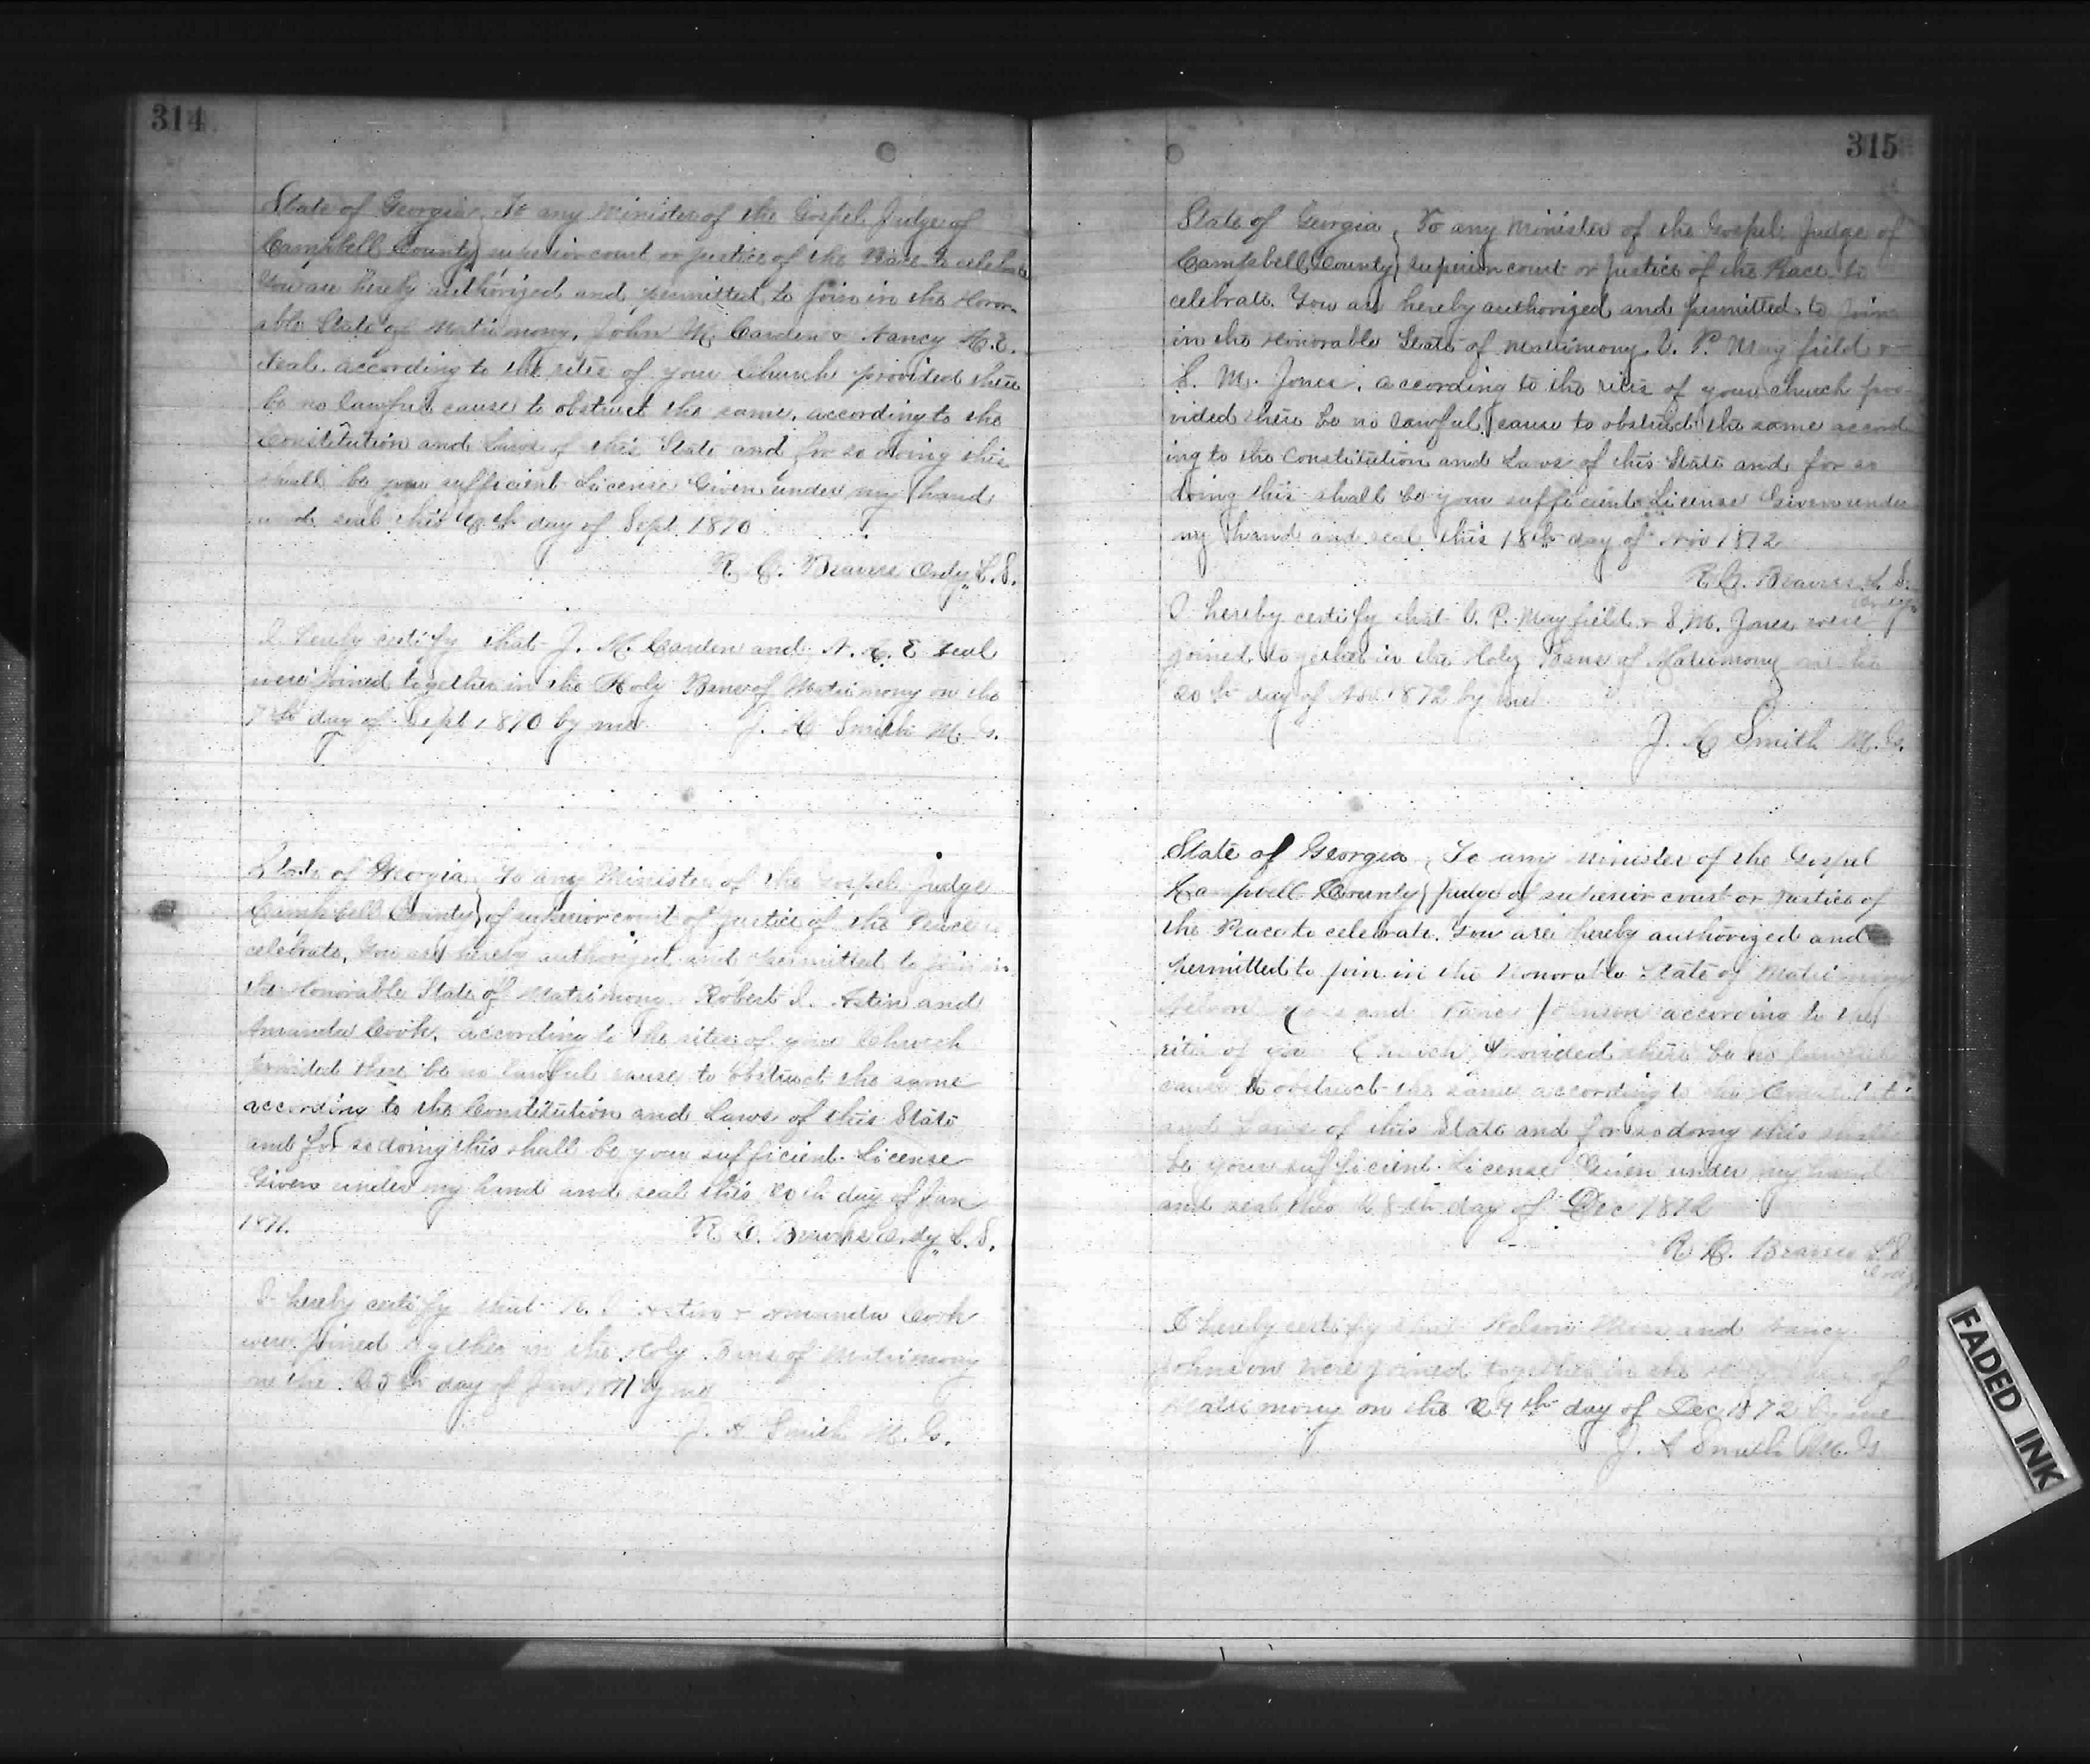 314
State of Georgia } To any Minister of the Gospel Judge of
Campbell County } superior court or justice of the Peace to celebrate
You are hereby authorized and permitted to join in the Honor-
able State of Matrimony. John M. Carden & Nancy
Neal. according to the rites of your Church provided there
be no lawful cause to obstruct the same. according to the
Constitution and Laws of this State and for so doing this
shall be your sufficient License Given under my hand
and seal this day of Sept. 1870
R. C. Beavers Ordy L. S.
I hereby certify that J. M. Carden and N. C. E Neal
were joined together in the Holy Bans of Matrimony on the
7th day of Sept 1870 by me J. A Smith M. G.
State of Georgia } To any Minister of the Gospel Judge
Campbell County } of superior court of justice of the Peace to
celebrate. You are hereby authorized and permitted to join in
the Honorable State of Matrimony Robert I. Astin and
Amanda Cook. according to the rites of your Church
provided there be no lawful cause to obstruct the same
according to the Constitution and Laws of this State
and for so doing this shall be your sufficient License
Given under my hand and seal this 20th day of Jan
1871. R C. Beavers Ordy L. S.
I hereby certify that R. I Astin & Amanda Cook
were joined together in the Holy Bans of Matrimony
on the 25th day of Jan 1871 by me
J. A Smith M. G.
315
State of Georgia } To any Minister of the Gospel Judge of
Campbell County } superior court or justice of the Peace to
celebrate. You are hereby authorized and permitted to join
in the Honorable State of Matrimony. V. P. Mayfield &
S. M. Jones. according to the rites of your church pro-
vided there be no lawful cause to obstruct the same accord
ing to the Constitution and Laws of this State and for so
doing this shall be your sufficient License Given under
my hand and seal this 18th day of Nov 1872
R. C. Beavers L. S.
Ordy
I hereby certify that V. P. Mayfield & S. M. Jones were
joined together in the Holy Bans of Matrimony on the
20th day of Nov. 1872 by me
J. A Smith M. G.
State of Georgia } To any minister of the Gospel
Campbell County } judge of superior court or Justice of
the Peace to celebrate. You are hereby authorized and
permitted to join in the Honorable State of Matrimony
Nelson Moss and Nancy Johnson according to the
rites of your Church, provided there be no lawful
cause to obstruct the same according to the Constitution
and Laws of this State and for so doing this shall
be your sufficient License Given under my hand
and seal this 28th day of Dec 1872
R C. Beavers L S
Ordy
I hereby certify that Nelson Moss and Nancy
Johnson were joined together in the Holy Bans of
Matrimony on the 29th day of Dec 1872 by me
J. A Smith M. G
FADED INK